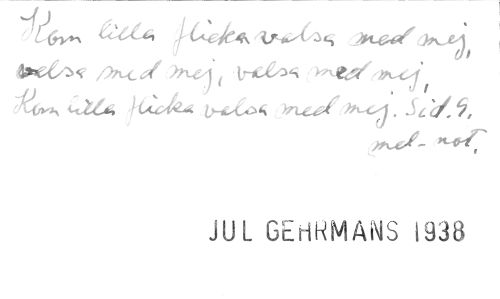 Kom lilla flicka valsa med mej,
valsa med mej, valsa med mej,
Kom lilla flicka valsa med mej. Sid. 9.
mel-not.
JUL GEHRMANS 1938